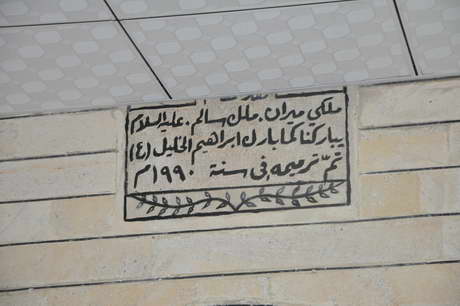 ملكي ميران. ملك سالم. عليه السلام
يباركنا كما بارك ابراهيم الخليل (ع)
تمّ ترميمه في سنة ١٩٩٠م